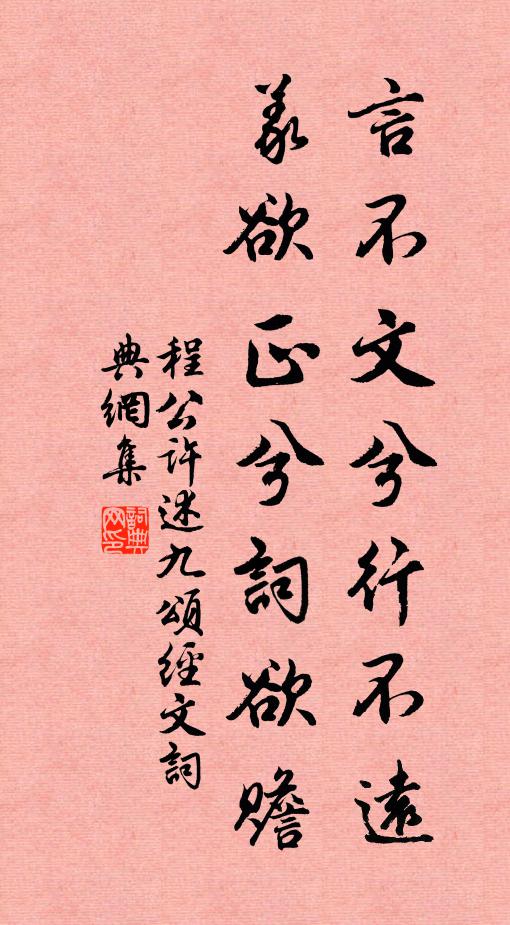 言不文兮行不遠
義欲正兮詞欲贍
程公許述九頌經文詞
典網集
詞典網印